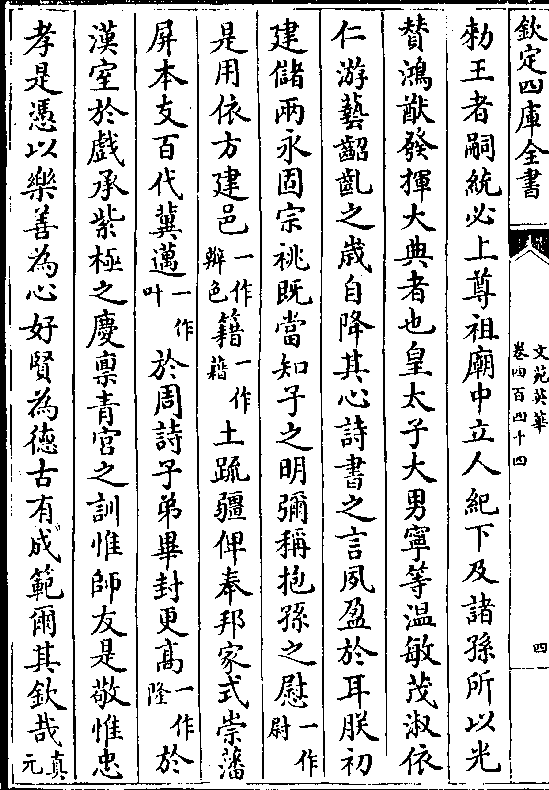 欽定四庫全書
文苑英華
卷四百四十四
四
勑王者嗣統必上尊祖廟中立人紀下及諸孫所以光
賛鴻猷發揮大典者也皇太子大男寧等温敏茂淑依
仁游藝齠齓之歳自降其心詩書之言夙盈於耳朕初
建儲兩永固宗祧既當知子之明彌稱抱孫之慰一作尉
是用依方建邑一作辦色籍一作藉土疏疆俾奉邦家式崇藩
屏本支百代冀邁一作叶於周詩子弟畢封更髙一作隆於
漢室於戲承紫極之慶禀青宫之訓惟師友是敬惟忠
孝是憑以樂善為心好賢為德古有成範爾其欽哉真元